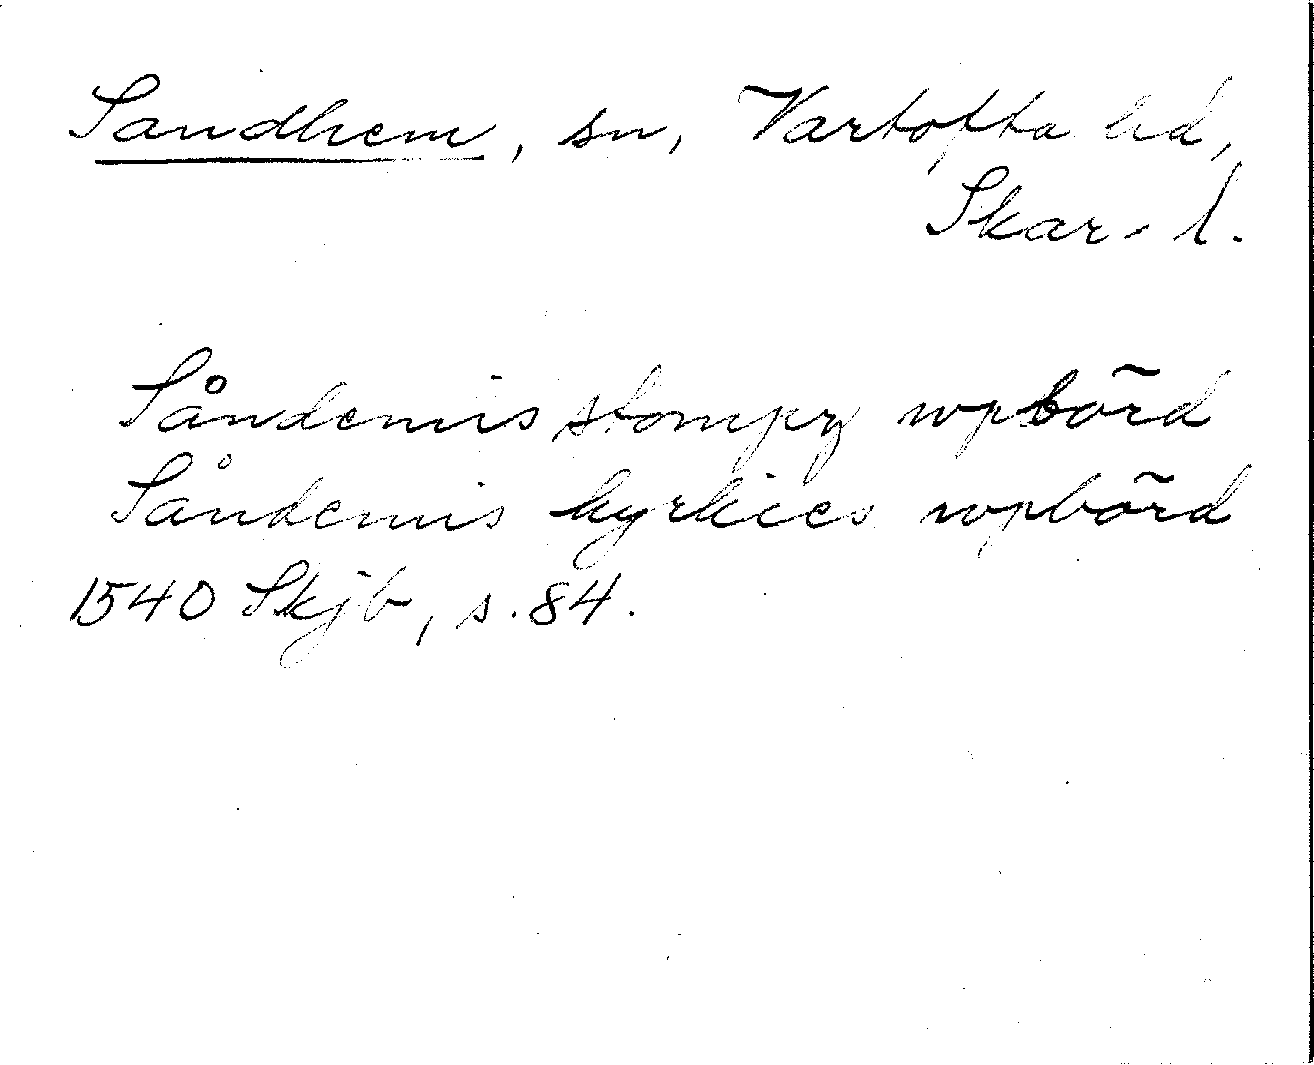 Sandhem, sn, Vartofta hd,
Skar. l.
Såndemis stompz wpbörd
Såndemis kyrkies wpbörd
1540 Skjb, s. 84.